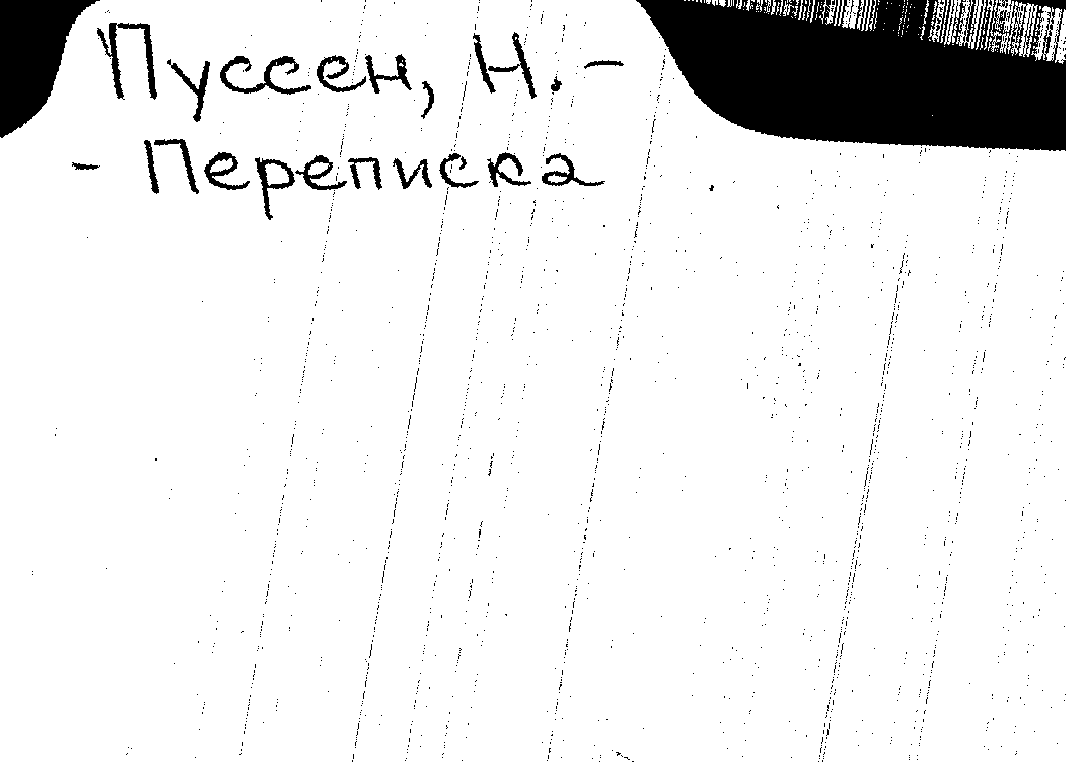 Пуссен, Н. –
– Переписка